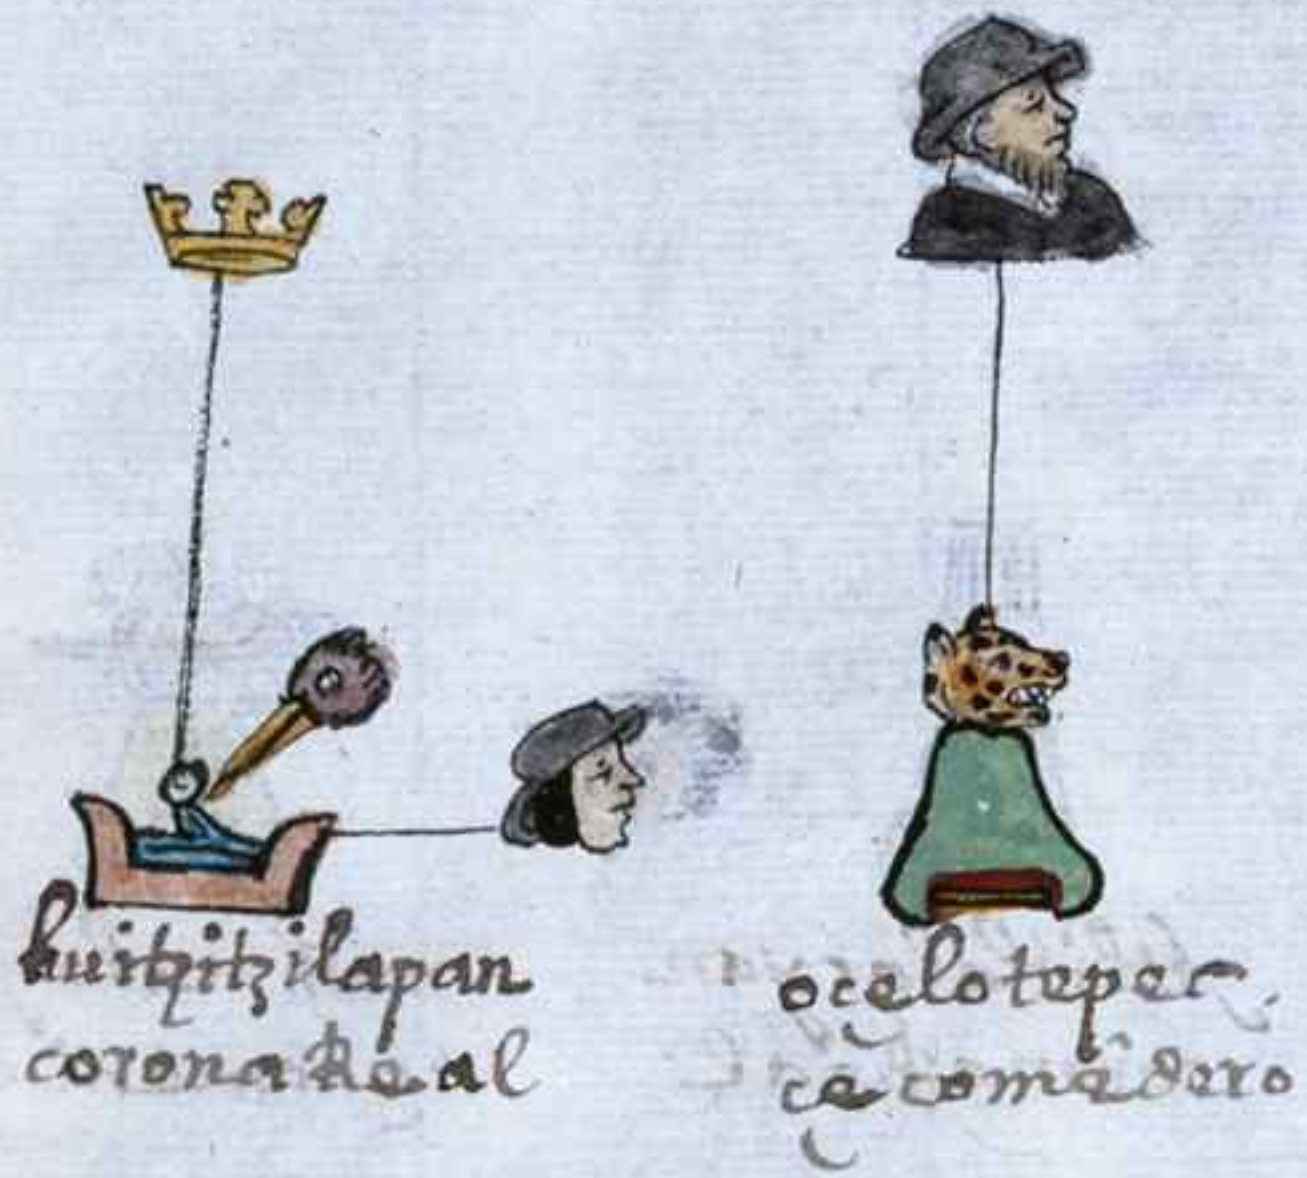 huitzitzilapan
corona Real
oçelotepec.
çe comēdero